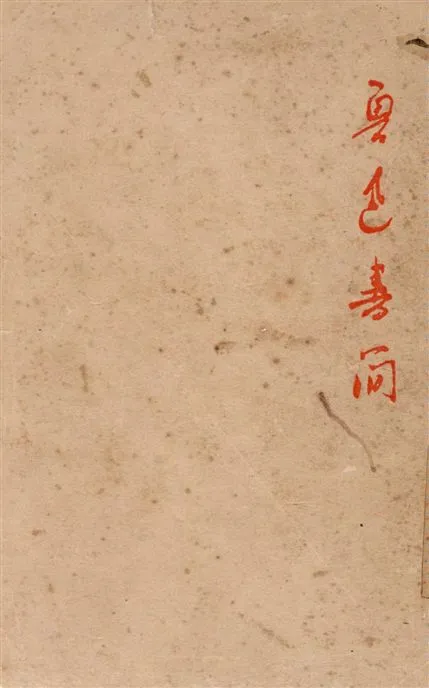 魯迅書簡